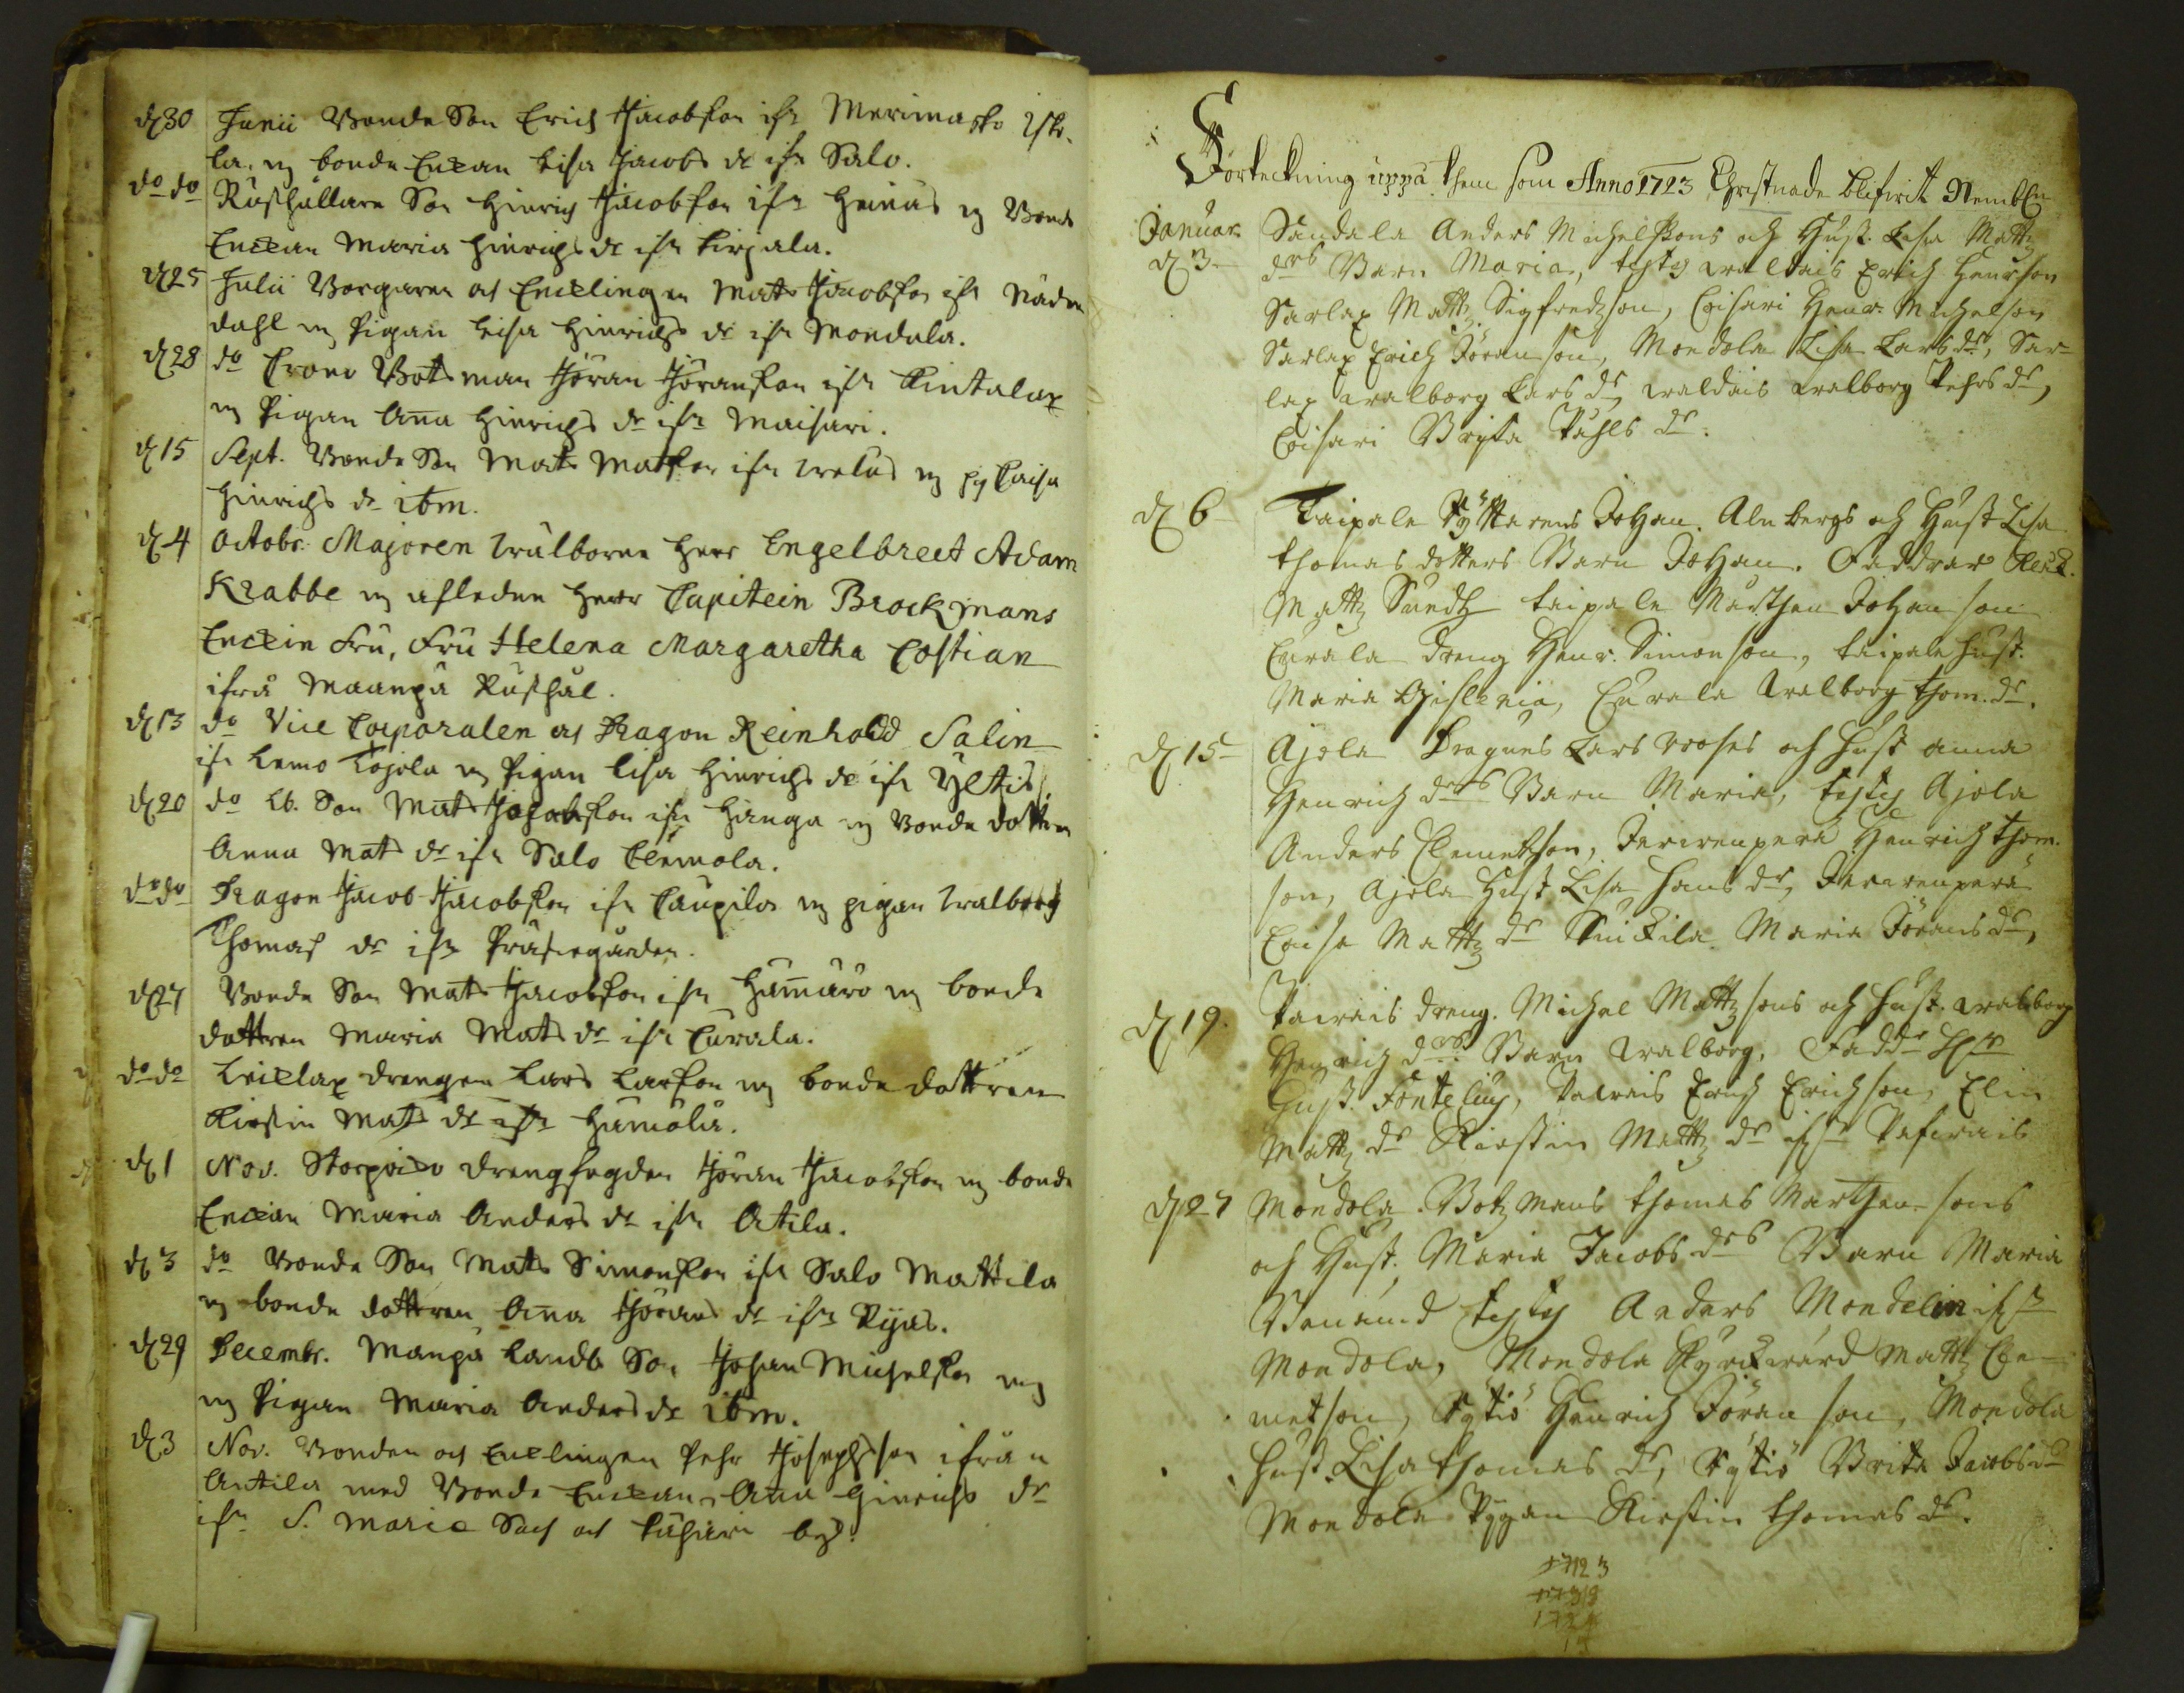 d 30 Junii Bonde Son Erich Jacobsson ifr Merimasko
la. m bonde Enckan Lisa Jacobs dr ifr Salo.
do do Rusthållare Son Hinrich Jacobsson ifr Heinäs m Bonde
Enckan Maria Hinrichs dr ifr Kirjala.
d 25 Julii Borgaren och Encklingen Mats Jacobsson ifr Nåden
dahl m Pigan Lisa Hinrichs dr ifr Mondala.
d 28 do Crono Botsman Jöran Jöransson ifr Kintalax
m Pigan Ana Hinrichs dr ifr Maisari.
d 15 Sept. Bonde Son Mats Matsson ifr m pig Caisa
Hinrichs dr ibm.
d 4 Octobr. Majoren Wälborne Herr Engelbrect Adam
Krabbe m afledne Herr Capitein Brockmans
Enckie Fru, Fru Helena Margaretha Costian
ifrå Maanpä Rusthål.
d 13 do Vice Corporalen och Dragon Reinhold Salin
ifr Lemo Tojola m Pigan Lisa Hinrichs dr ifr Yltis.
d 20 do Lb. Son Mats Jacobsson ifr Hanga m Bonde dottren
Anna Mats dr ifr Salo Clemola.
do do Dragon Jacob Jacobsson ifr Caupila m pigan Walborg
Thomas dr ifr Prästegården.
d 27 Bonde Son Mats Jacobsson ifr Hamarö m bonde
dottren Maria Mats dr ifr Curala.
do do Leicklax drengen Lars Larsson m bonde dottren
Kirstin Mats dr ifr Hämälä.
d 1 Nov. drengfogden Jöran Jacobsson m bonde
Enckian Maria Anders dr ifr Atila.
d 3 do Bonde Son Mats Simonsson ifr Salo Mattila
m bonde dottren Ana Jörans dr ifr Rijas.
d 29 Decembr. Manpä Landb Son Johan Michelsson
m Pigan Maria Anders dr ibm.
d 3 Nov. Bonden och Encklingen Pehr Josephsson ifrån
Antila med Bonde Enckan Ana Hinrichs dr
ifr S. Marie Sock och by.
Förteckning uppå them som Anno 1723 Christnade blifwit Nembln
Januar. Sandala Anders Michelssons och Hust. Lisa Mattz
d 3 drs Barn Maria, testes Waldais Erich Henrson
Sarlax Mattz Sigfredson, Caisari Henr. Michelson
Sarlax Erich Jöranson, Mondola Lisa Lars dr, Sar=
lax Walborg Lars dr, Waldais Walborg Pehrs dr,
Caisari Brita Påhls dr.
d 6 Taipale Ryttarens Johan Alnbergs och Hust Lisa
thomas dotters Barn Johan. Faddrar
Mattz Sundh taipale Mårthen Johanson
Curala dreng Henr. Simonson, taipale Hust.
Maria Curala Walborg thom. dr.
d 15 Ajola Dragons Lars Rooses och Hust anna
Henrich drs Barn Maria, testes Ajola
Anders Clemetson, Järwenperä Henrich thom.
son, Ajola Hust Lisa Hans dr, Järwenperä
Caisa Mattz dr Maria Jörans dr,
d 19. dreng. Michael Mattzsons och Hust. Walborg
Henrich drs Barn Walborg, Faddr Hr
Gust. Fontelius, Erich Erichson, Elin
Mattz dr Kirstin Mattz dr ifr
d 27 Mondola Botzmans thomas Marthensons
och Hust. Maria Jacobs drs Barn Maria
testes Anders Mondelin ifr
Mondola, Mondola Kyrckiewärd Mattz Cle=
metson, Rytiö Henrich Jöranson, Mondola
Hust. Lisa thomas dr, Rytiö Brita Jacobs dr
Mondola Pygan Kirstin thomas dr.
1723